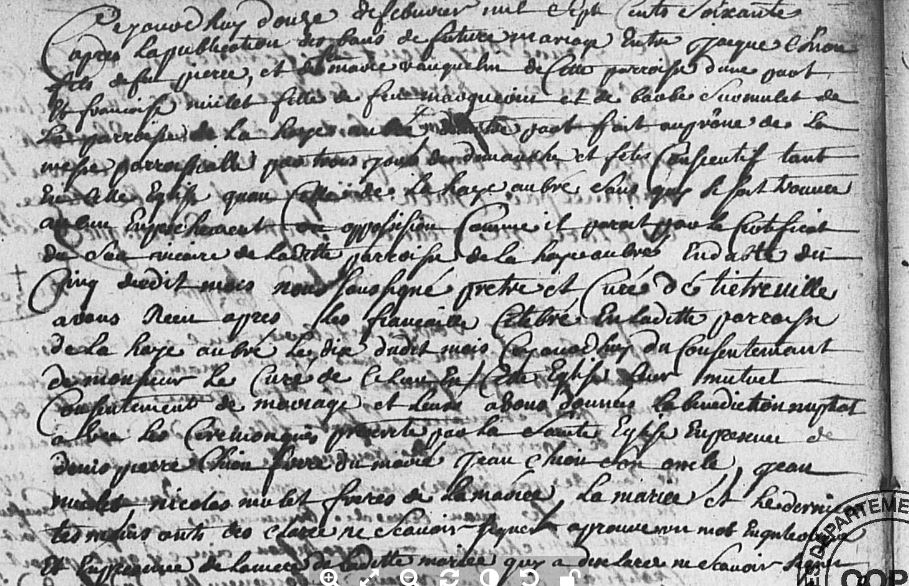 Cejourdhuy douze defebvrier mil sept cents soixante
apres lapublication des bans de futur mariage Entre Jacque Chion
fils de feu pierre, et de marie vauquelin de Cette parroisse dune part
Et francoise mulet fille de feu et de barbe mulet de
La parroisse de La haye aubré dautre part fait auprône de La
messe parroissialle par trois jours de dimanche et fetes Consecutif tant
En cette Eglise quen Celle de la haye aubré sans quy se soit trouvée
aucun Empechement ou opposision Comme il paroit par le Certificat
du Sieur vicaire de Laditte parroisse de la haye aubré En datte du
Cinq dudit mois nous soussigné pretre et Curé de tietreville
avons Recu apres les fiancaille Celebré En laditte parroisse
de la haye aubré Le dix dudit mois Cejourdhuy du Consentement
de monsieur Le Curé de En Cette Eglise Leur mutuel
Consentement de mariage et Leurs avons donnés La benediction nuptial
avec Les Ceremonies prescrite par La Sainte Eglise En presence de
denis pierre Chion frere du marié Jean Chion son oncle, Jean
mulet nicolas mulet freres de La mariée, La mariée et Le dernier
temoins ont declaré ne Scavoir signer aprouvé un mot En
Et En presence de Lamere de laditte mariée quy a declaree ne Scavoir signer
DEPARTEMENT